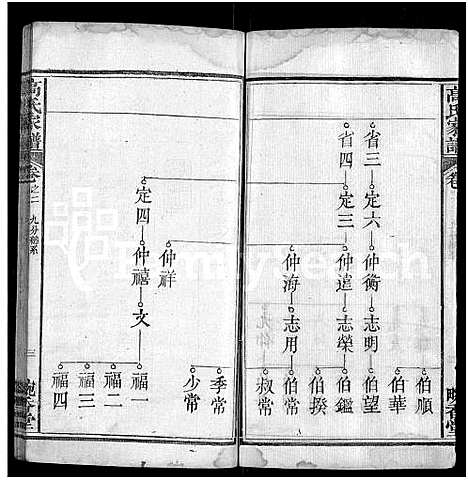 高氏家譜
卷
省三
定六
仲衡
志明
伯順
伯華
伯望
省四
定三
仲達
志榮
伯鑑
伯揆
仲海
志用
伯常
叔常
季常
少常
仲祥
定四
仲禧
文
福一
福二
福三
福四
高氏家譜
卷之二
九分總系
三